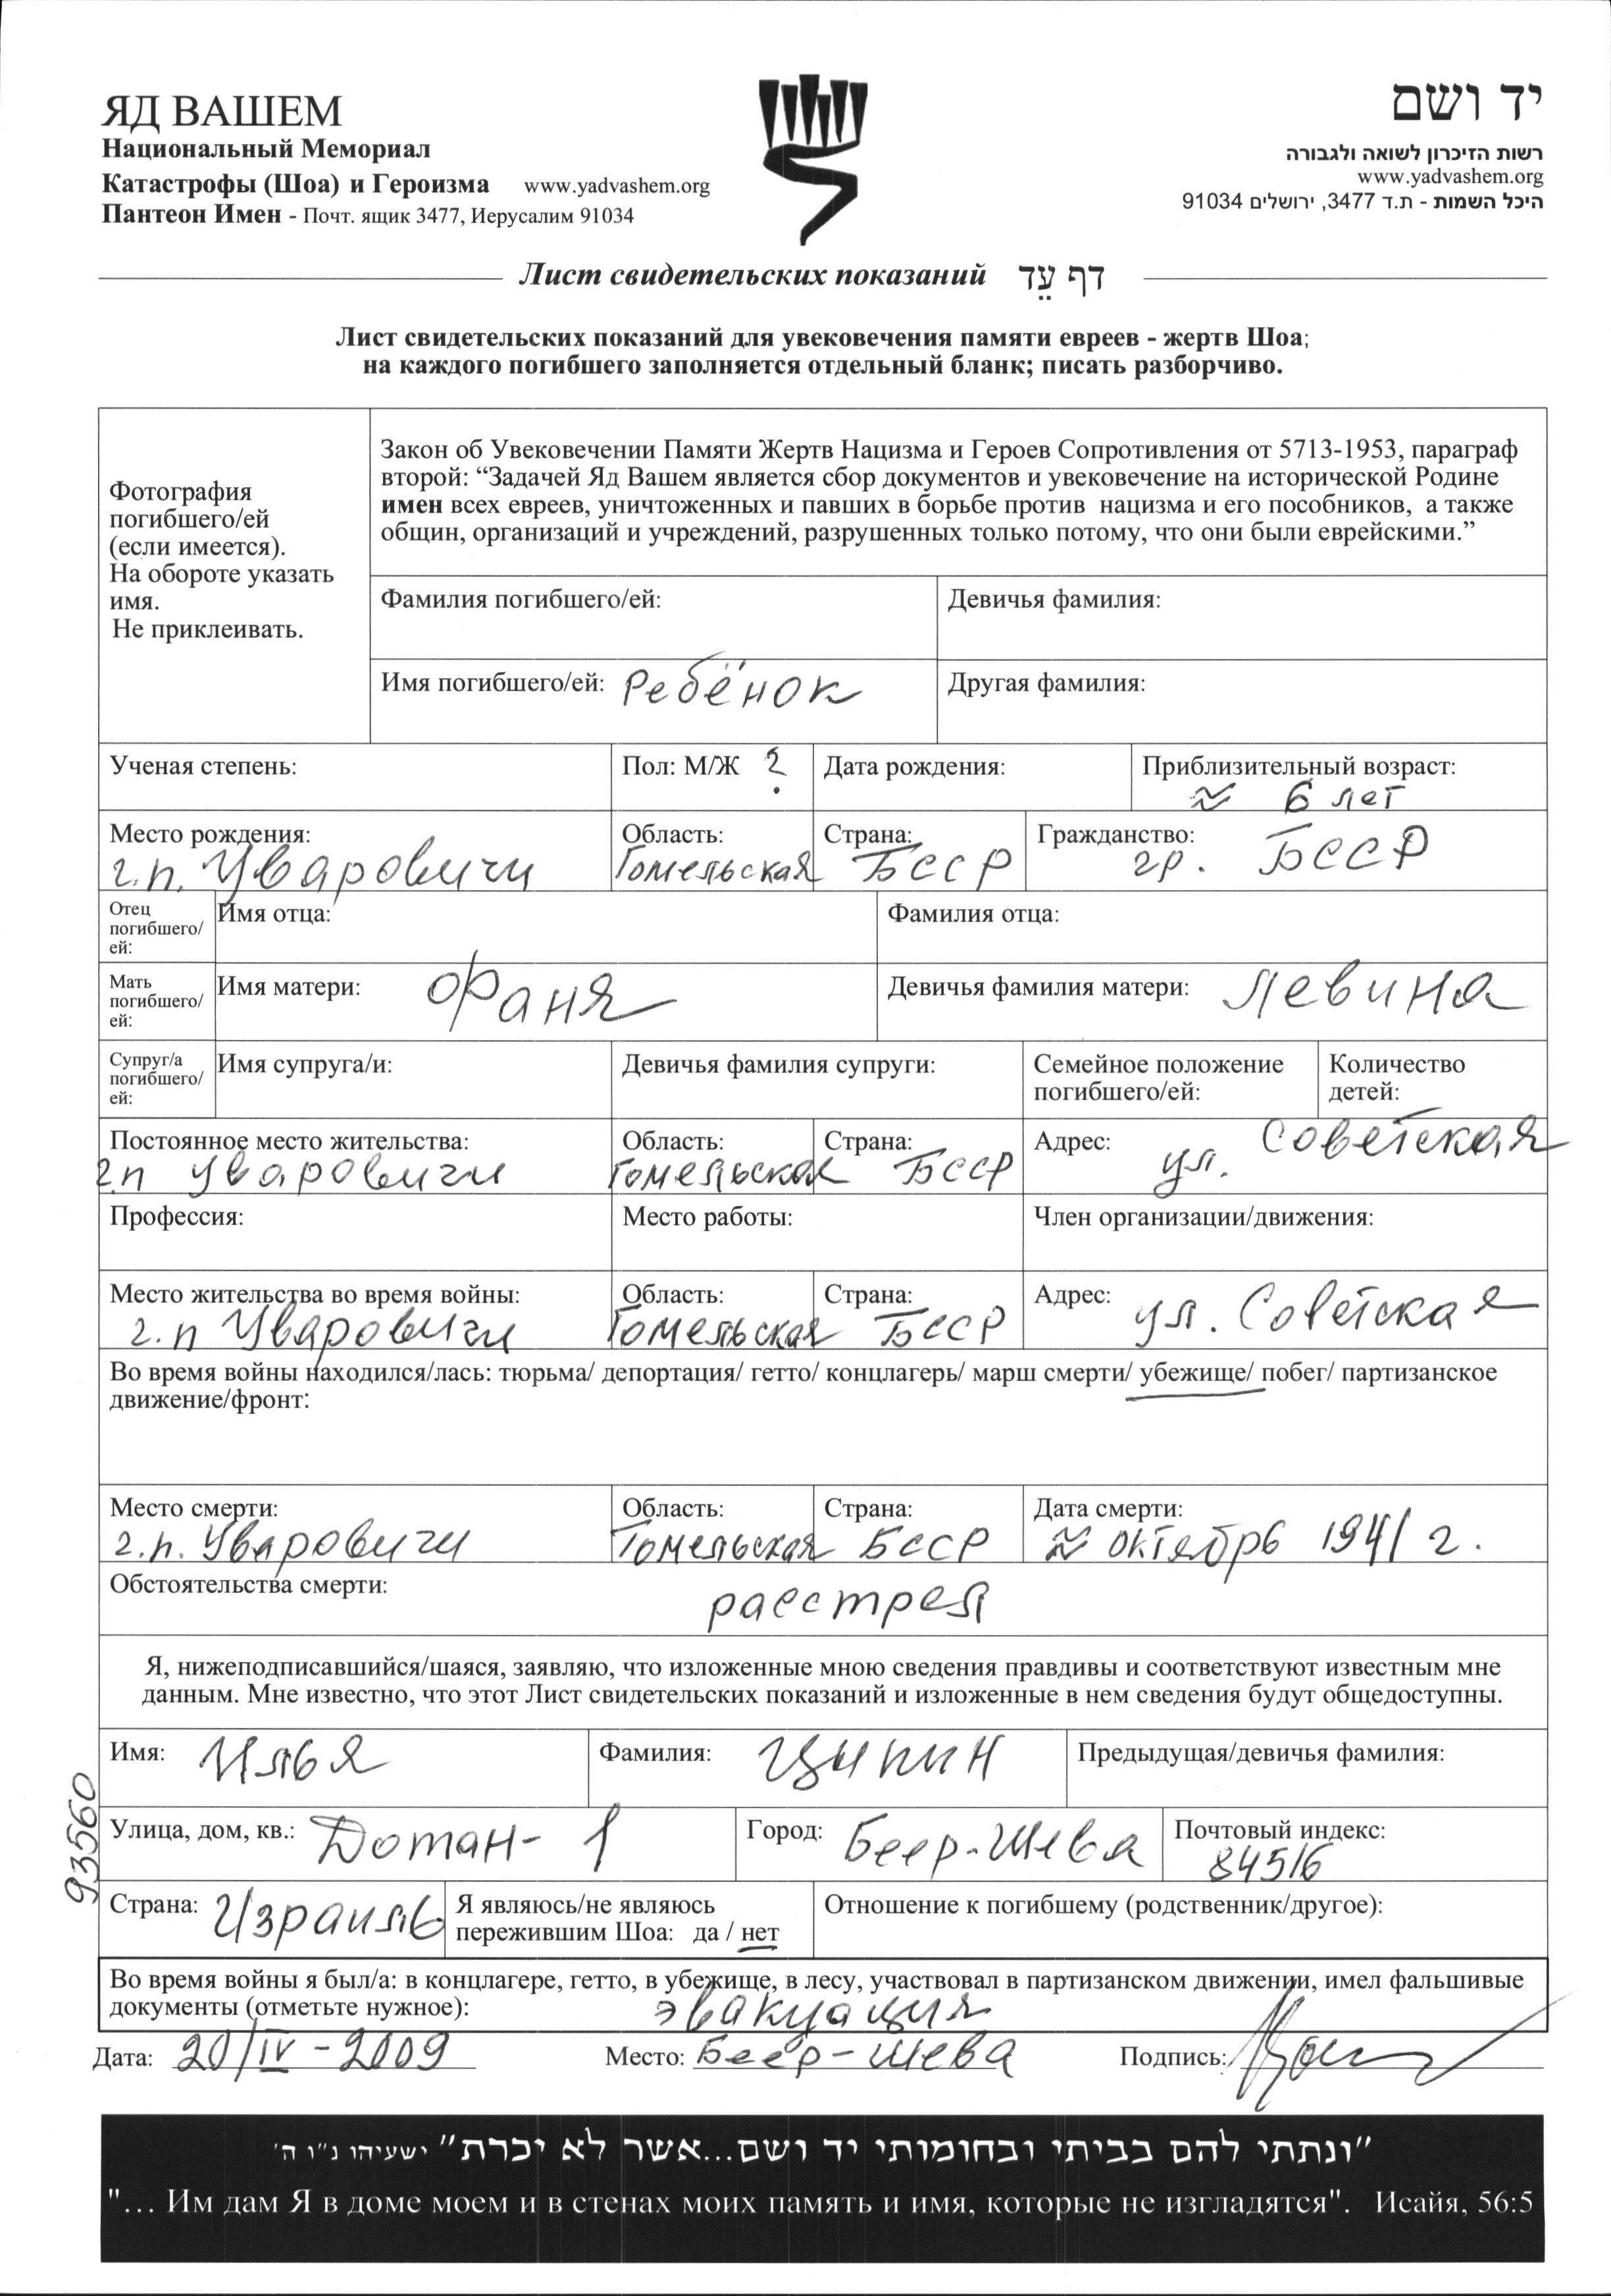 ЯД ВАШЕМ
Национальный Мемориал
Катастрофы (Шоа) и Героизма www.yadvashem.org
Пантеон Имен - Почт. ящик 3477, Иерусалим 91034
יד ושם
רשות הזיכרון לשואה ולגבורה
www.yadvashem.org
היכל השמות - ת.ד 3477, ירושלים 91034
Лист свидетельских показаний דף עֵד
Лист свидетельских показаний для увековечения памяти евреев - жертв Шоа;
на каждого погибшего заполняется отдельный бланк; писать разборчиво.
Фотография
погибшего/ей
(если имеется).
На обороте указать
имя.
Не приклеивать.
Закон об Увековечении Памяти Жертв Нацизма и Героев Сопротивления от 5713-1953, параграф
второй: “Задачей Яд Вашем является сбор документов и увековечение на исторической Родине
имен всех евреев, уничтоженных и павших в борьбе против нацизма и его пособников, а также
общин, организаций и учреждений, разрушенных только потому, что они были еврейскими.”
Фамилия погибшего/ей: Девичья фамилия:
Имя погибшего/ей: Ребёнок Другая фамилия:
Ученая степень: Пол: М/Ж ? Дата рождения: Приблизительный возраст:
≈ 6 лет
Место рождения: Область: Страна: Гражданство:
г.п. Уваровичи Гомельская БССР гр. БССР
Отец
погибшего/
ей:
Имя отца: Фамилия отца:
Мать
погибшего/
ей:
Имя матери: Фаня Девичья фамилия матери: Левина
Супруг/а
погибшего/
ей:
Имя супруга/и: Девичья фамилия супруги: Семейное положение
погибшего/ей:
Количество
детей:
Постоянное место жительства: Область: Страна: Адрес:
г.п Уваровичи Гомельская БССР ул. Советская
Профессия: Место работы: Член организации/движения:
Место жительства во время войны: Область: Страна: Адрес:
г.п Уваровичи Гомельская БССР ул. Советская
Во время войны находился/лась: тюрьма/ депортация/ гетто/ концлагерь/ марш смерти/ убежище/ побег/ партизанское
движение/фронт:
Место смерти: Область: Страна: Дата смерти:
г.п. Уваровичи Гомельская БССР ≈ октябрь 1941 г.
Обстоятельства смерти:
расстрел
Я, нижеподписавшийся/шаяся, заявляю, что изложенные мною сведения правдивы и соответствуют известным мне
данным. Мне известно, что этот Лист свидетельских показаний и изложенные в нем сведения будут общедоступны.
Имя: Илья Фамилия: Ципин Предыдущая/девичья фамилия:
93560
Улица, дом, кв.: Дотан- 1 Город: Беер-Шева Почтовый индекс:
84516
Страна: Израиль Я являюсь/не являюсь
пережившим Шоа: да / нет
Отношение к погибшему (родственник/другое):
Во время войны я был/а: в концлагере, гетто, в убежище, в лесу, участвовал в партизанском движении, имел фальшивые
документы (отметьте нужное): эвакуация
Дата: 20/IV-2009 Место: Беер-Шева Подпись:
״ונתתי להם בביתי ובחומותי יד ושם...אשר לא יכרת״ ישעיהו נ״ו ה׳
"... Им дам Я в доме моем и в стенах моих память и имя, которые не изгладятся". Исайя, 56:5